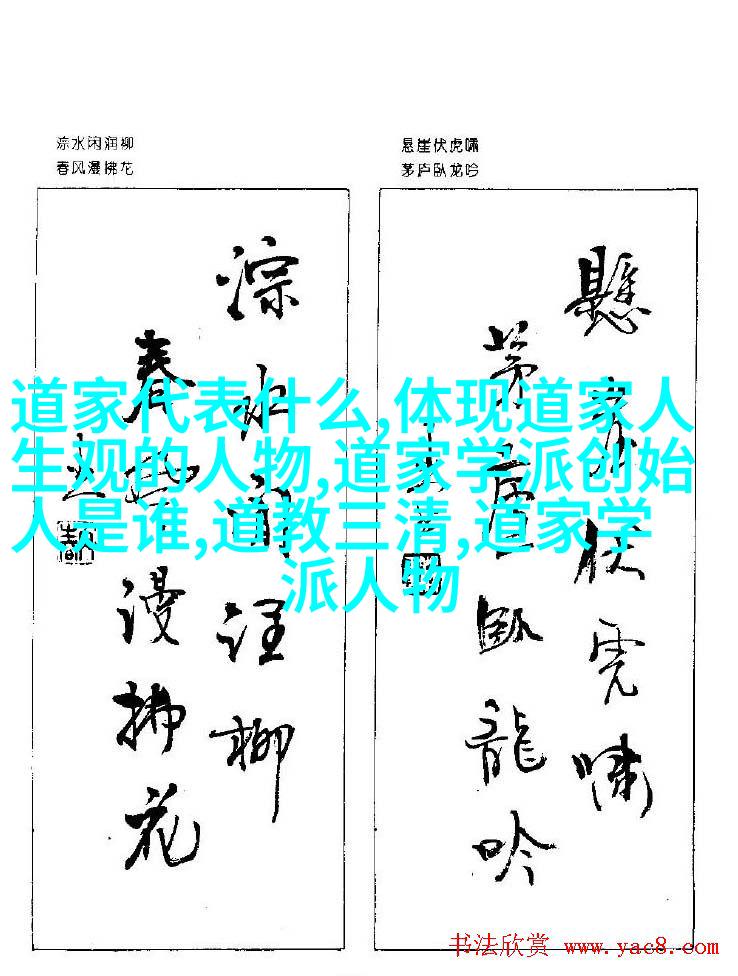 淙水闲润柳
春风漫拂花
悬崖伏虎啸
茅庐卧龙吟
道家代表什么,体现道家人
生观的人物,道家学派创始
人是谁,道教三清,道家学
派人物
懸崖伏虎嘯
茅廬臥龍吟
淙水闲润柳
春风漫拂花
书法欣赏 www.yac8.com